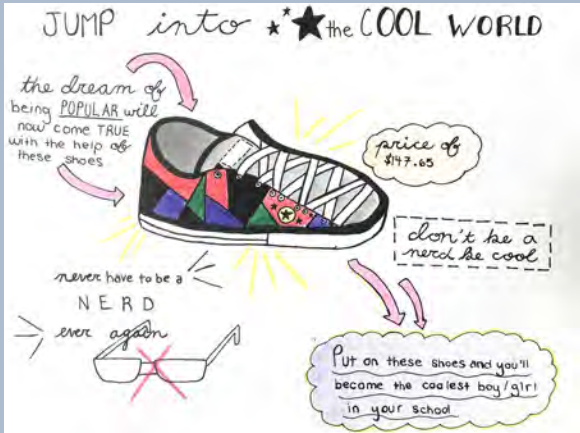 JUMP into the COOL WORLD
the dream of
being POPULAR will
now come TRUE
with the help of
these shoes
price of
$147.65
don't be a
nerd be cool
never have to be a
NERD
ever again
Put on these shoes and you'll
become the coolest boy/girl
in your school